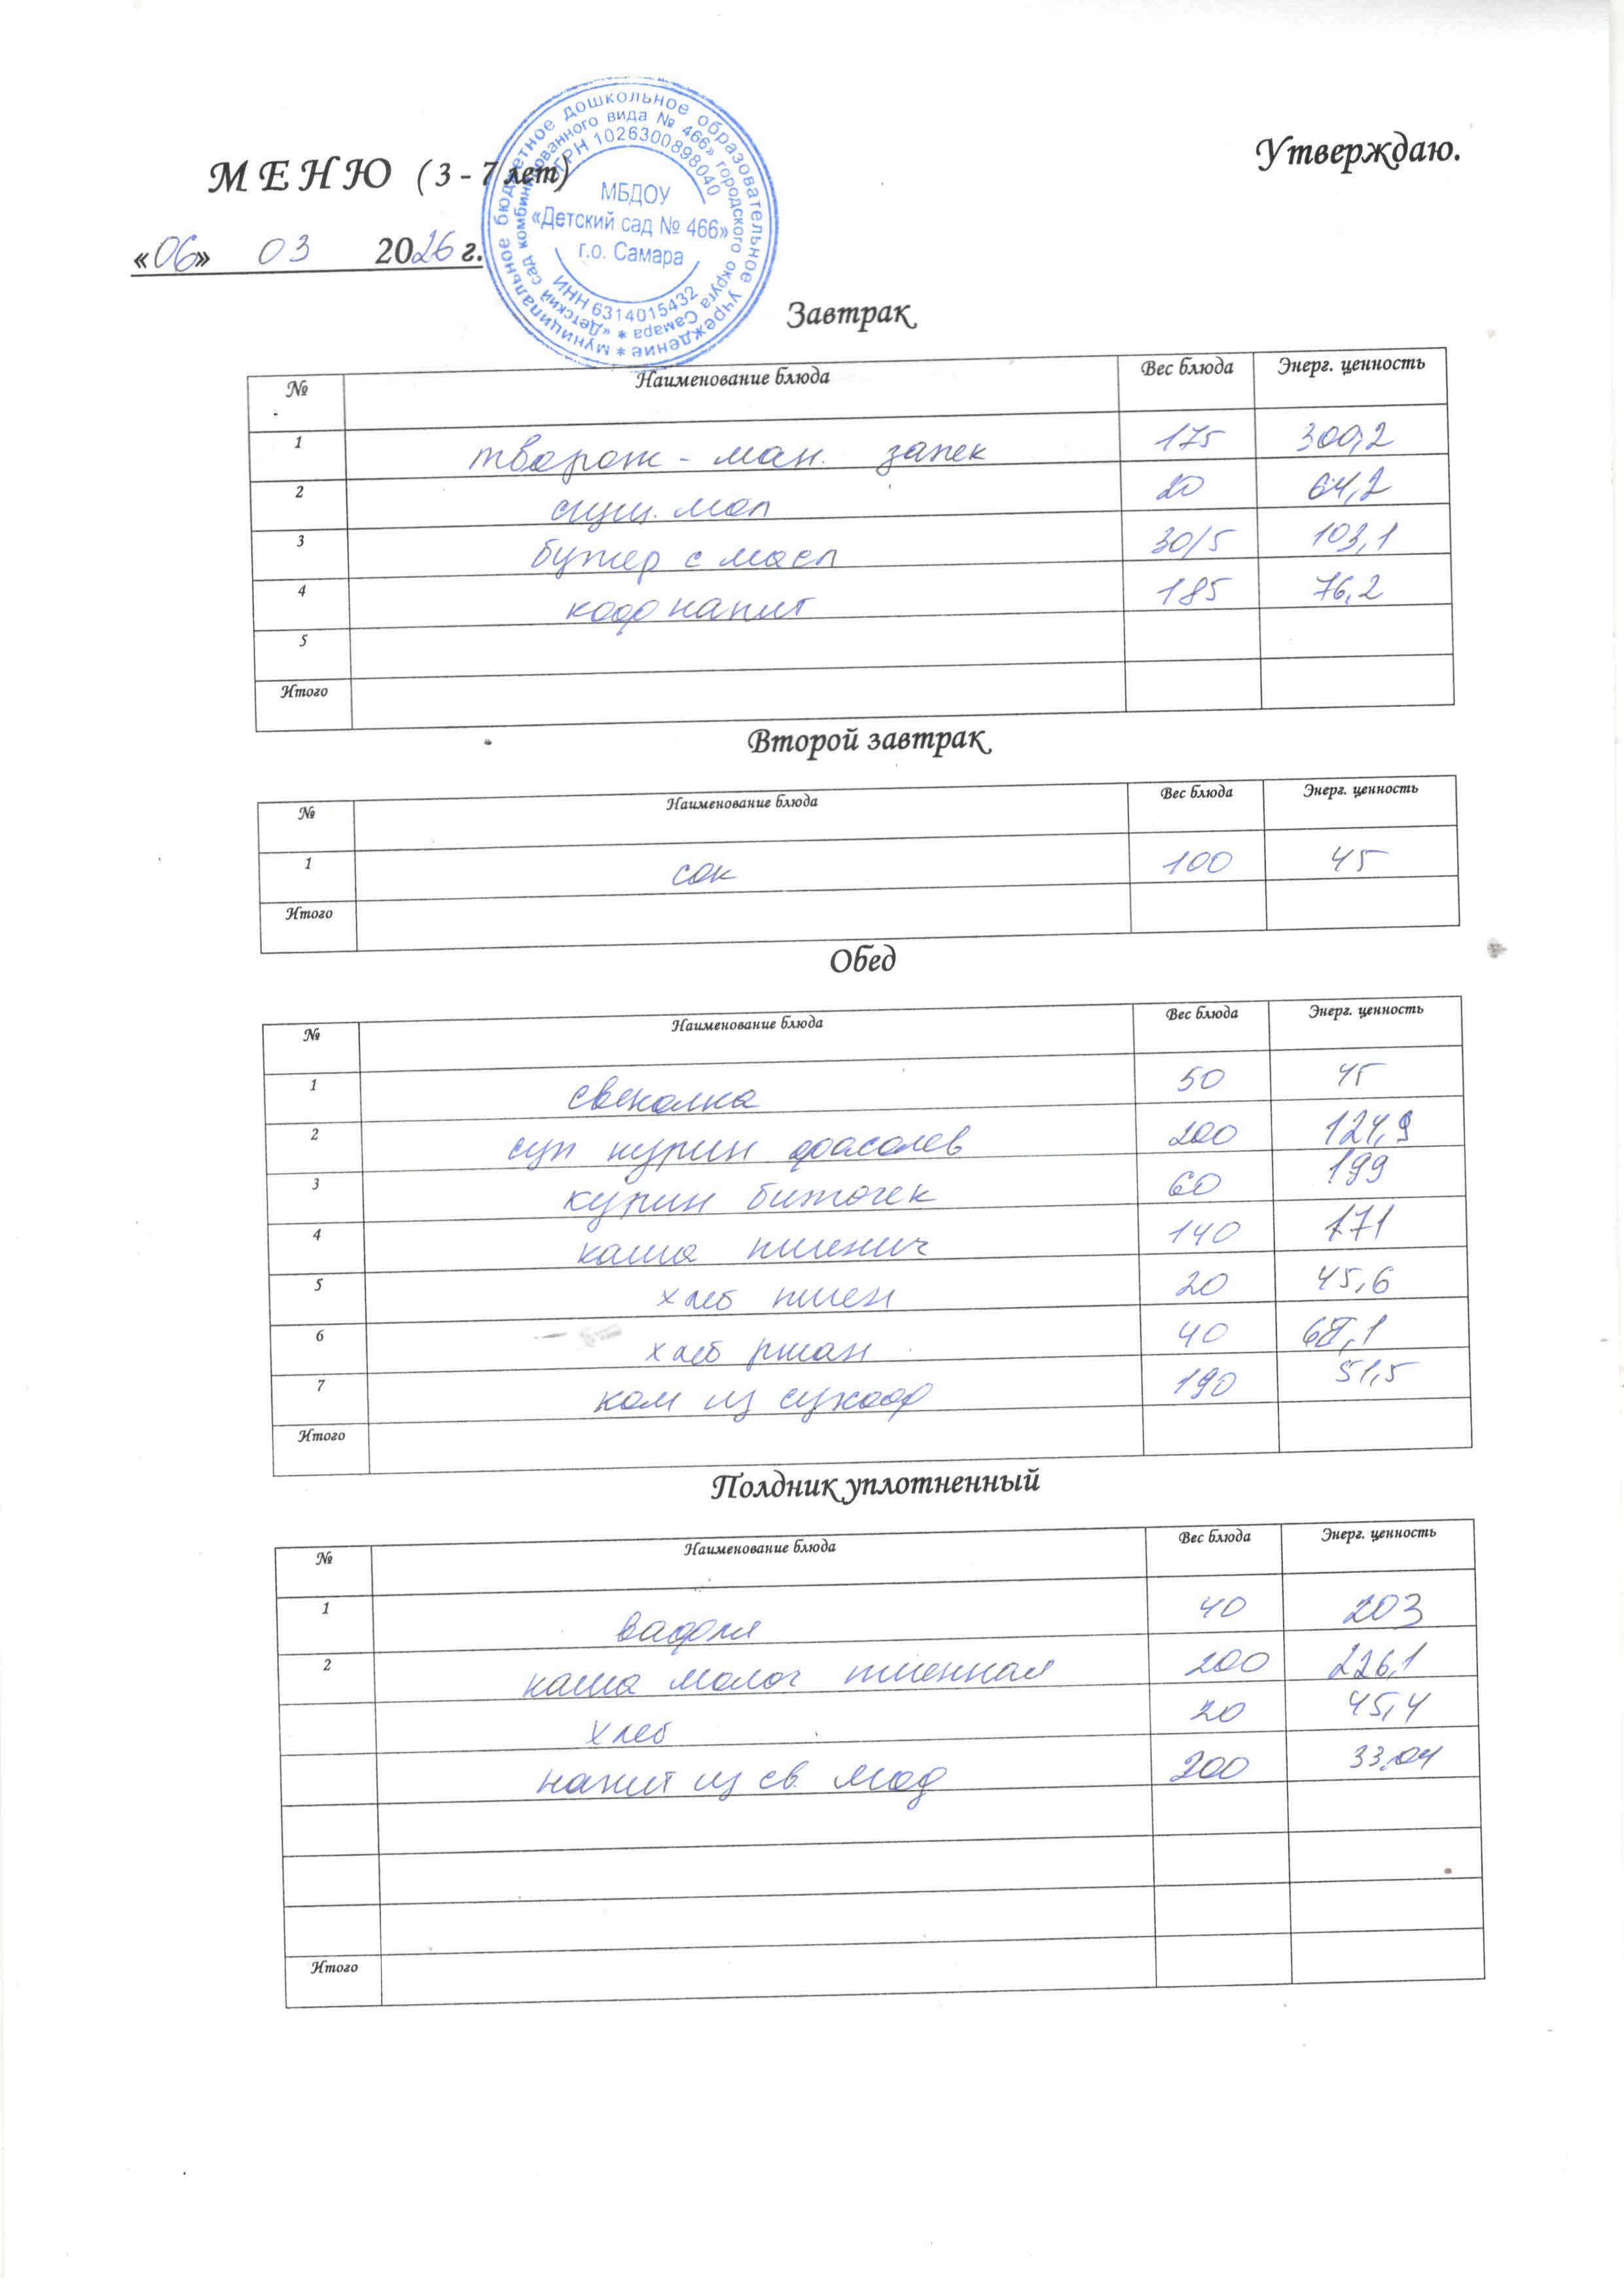 Утверждаю.
М Е Н Ю ( 3 - 7 лет)
«06» 03 2026 г.
муниципальное бюджетное дошкольное образовательное учреждение *
«Детский сад комбинированного вида № 466» городского округа Самара *
ОГРН 1026300898040
МБДОУ
«Детский сад № 466»
г.о. Самара
ИНН 6314015432
Завтрак
№ Наименование блюда Вес блюда Энерг. ценность
1 творож - ман. запек 175 300,2
2 сгущ. мол 20 64,2
3 бутер с масл 30/5 103,1
4 коф напит 185 76,2
5
Итого
Второй завтрак
№ Наименование блюда Вес блюда Энерг. ценность
1 сок 100 45
Итого
Обед
№ Наименование блюда Вес блюда Энерг. ценность
1 свеколка 50 45
2 суп курин фасолев 200 124,9
3 курин биточек 60 199
4 каша пшенич 140 171
5 хлеб пшен 20 45,6
6 хлеб ржан 40 68,1
7 ком из сухоф 190 51,5
Итого
Полдник уплотненный
№ Наименование блюда Вес блюда Энерг. ценность
1 вафли 40 203
2 каша молоч пшенная 200 226,1
хлеб 20 45,4
напит из св. 200 33,04
Итого